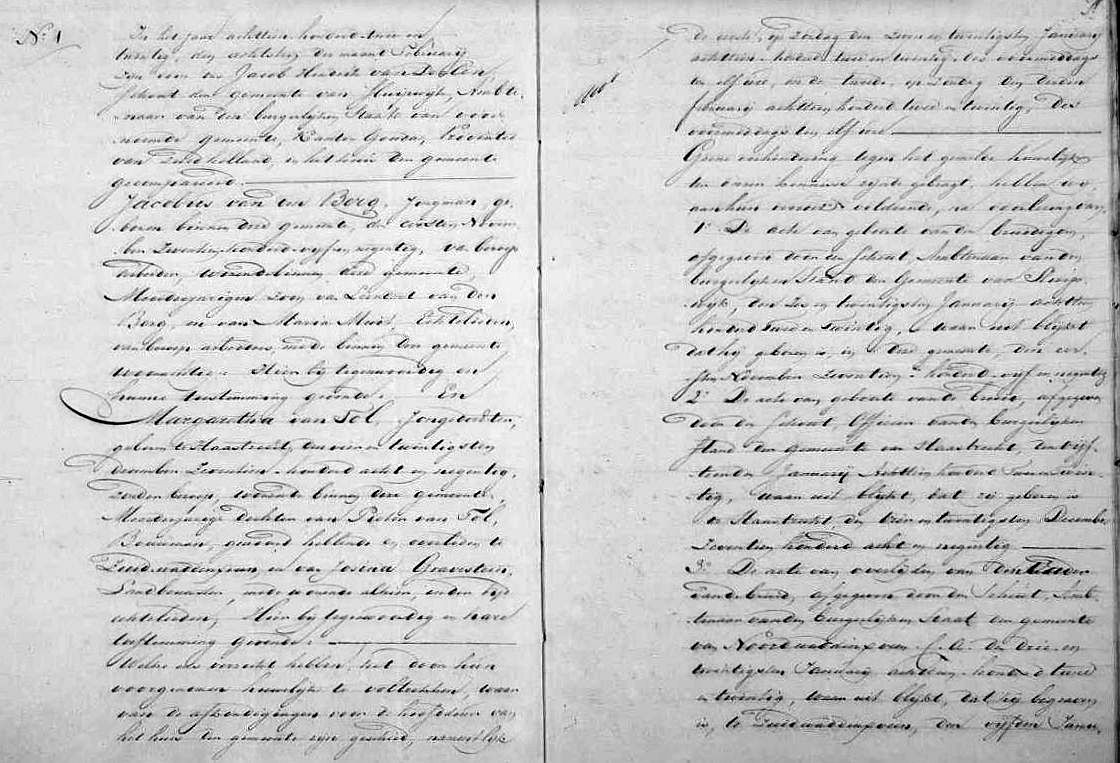 No. 1
In het jaar achttien honderd twee en
twintig, den achtsten der maand Februarij
zyn voor ons Jacob Hendrik van
Schout der gemeente van Sluipwyk, Ambte-
naar van den burgerlyken Staat van voor
noemde gemeente, Kanton Gouda, Provintie
van Zuidholland, in het huis der gemeente
gecompareerd.
Jacobus van den Berg, Jongman, ge-
boren binnen dese gemeente, den eersten Novem-
ber Zeventien honderd vyf en negentig, van beroep
arbeider, woonende binnen dese gemeente,
Meerderjarigen zoon van Leendert van den
Berg, en van Maria Echtelieden,
van beroep arbeiders, mede binnen den gemeente
woonende. Hier by tegenwoordig en
hunne toestemming gevende. En
Margaretha van Tol, Jongedochter,
geboren te Haastrecht, den en twintigsten
december Zeventien honderd acht en negentig,
zonder beroep, woonende binnen dese gemeente,
Meerderjarige dochter van Pieter van Tol,
Bouwman, gewoond hebbende en overleden te
Zuidwaddinxveen en van Josina Gravestein,
Landbouwster, mede woonende aldaar, in den tyd
echtelieden, Hier by tegenwoordig en hare
toestemming gevende.
Welke ons verzocht hebben, het door hun
voorgenomen huwelyk te voltrekken, waar
van de afkondigingen voor de hoofddeur van
het huis der gemeente zyn geschied, namentlyk
De eerste, op Zondag den Zeven en twintigsten Januarij
achttien honderd twee en twintig, des voormiddags
ten elf ure, en de tweede, op Zondag den derden
februarij achttien honderd twee en twintig, des
voormiddags ten elf ure
Geene verhindering tegen het gemelde huwelyk
ter onzen kennisse zynde gebragt, hebben wy,
aan hun verzoek voldoende, na voorlezing van
1o De acte van geboorte van den bruidegom,
afgegeven door den Schout, Ambtenaar van den
burgerlyken Stand der Gemeente van Sluip-
wyk, den zes en twintigsten Januarij achttien
honderd Twee en Twintig, waar uit blykt
dat hy geboren is, in dese gemeente, den eer-
sten November Zeventien honderd vyf en negentig
2o De acte van geboorte van de bruid, afgegeven
door den Schout, Officier van den burgerlyken
Stand der gemeente van Haastrecht, den vyf-
tienden Januarij Achttien honderd twee en twin-
tig, waar uit blykt, dat zy geboren is
te Haastrecht, den drie en twintigsten December
Zeventien honderd acht en negentig
3o De acte van overlyden van
afgegeven door den Schout, Amb-
tenaar van den burgerlyken Staat der gemeente
van Noordwaddinxveen C. A. den drie en
twintigsten Januarij achttien honderd twee
en twintig, waar uit blykt, dat hy begraven
is, te Zuidwaddinxveen, den vyfden Janu-